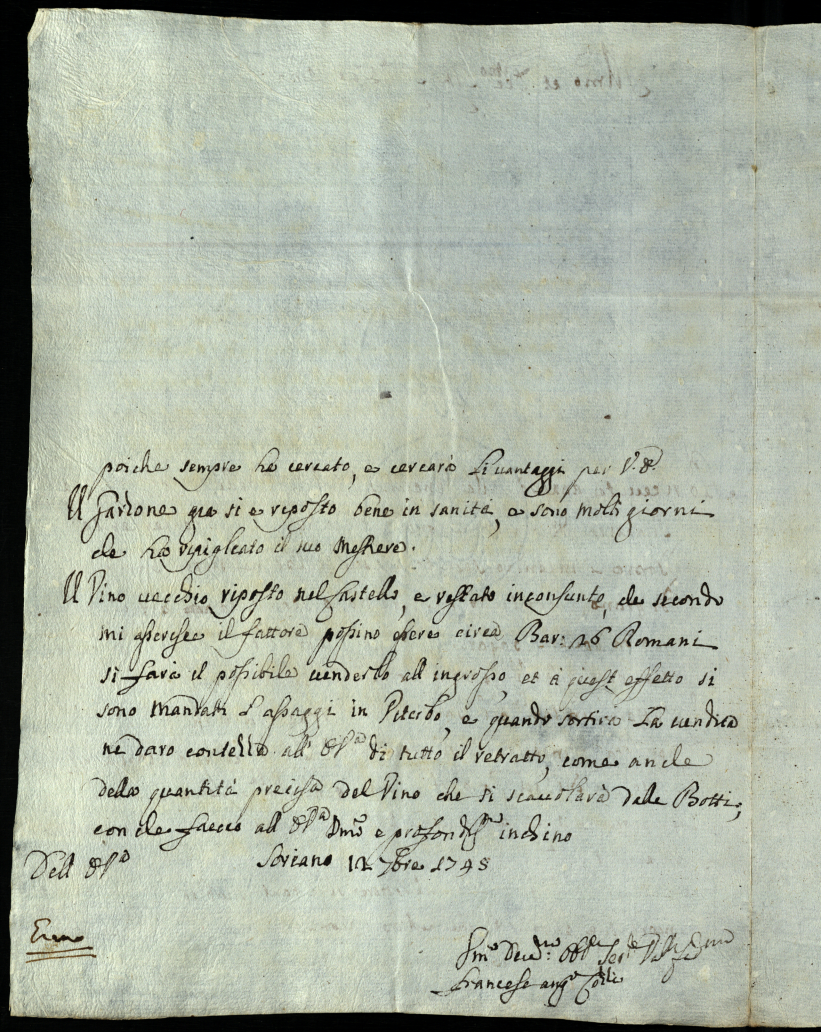 poiche sempre ha cercato, e cercarà li vantaggi per V. E.
Il Garzone già si è riposto bene in sanità, e sono molti giorni
che ha ripigleato il suo mestiere.
Il Vino vecchio riposto nel Castello, e restato inconsunto, che secondo
mi asserisce il fattore possino essere circa Bar: 26 Romani
si farà il possibile venderlo all ingrosso, et à quest effetto si
sono mandati l'assaggi in Viterbo, e quando sortirà la vendita
ne darò contezza all' di tutto il retratto, come anche
della quantità precisa del Vino che si scavolarà dalle Botti;
con che faccio all e profondis.mo inchino
Dell
Soriano 12 7bre 1748
Francesc' Ang.o